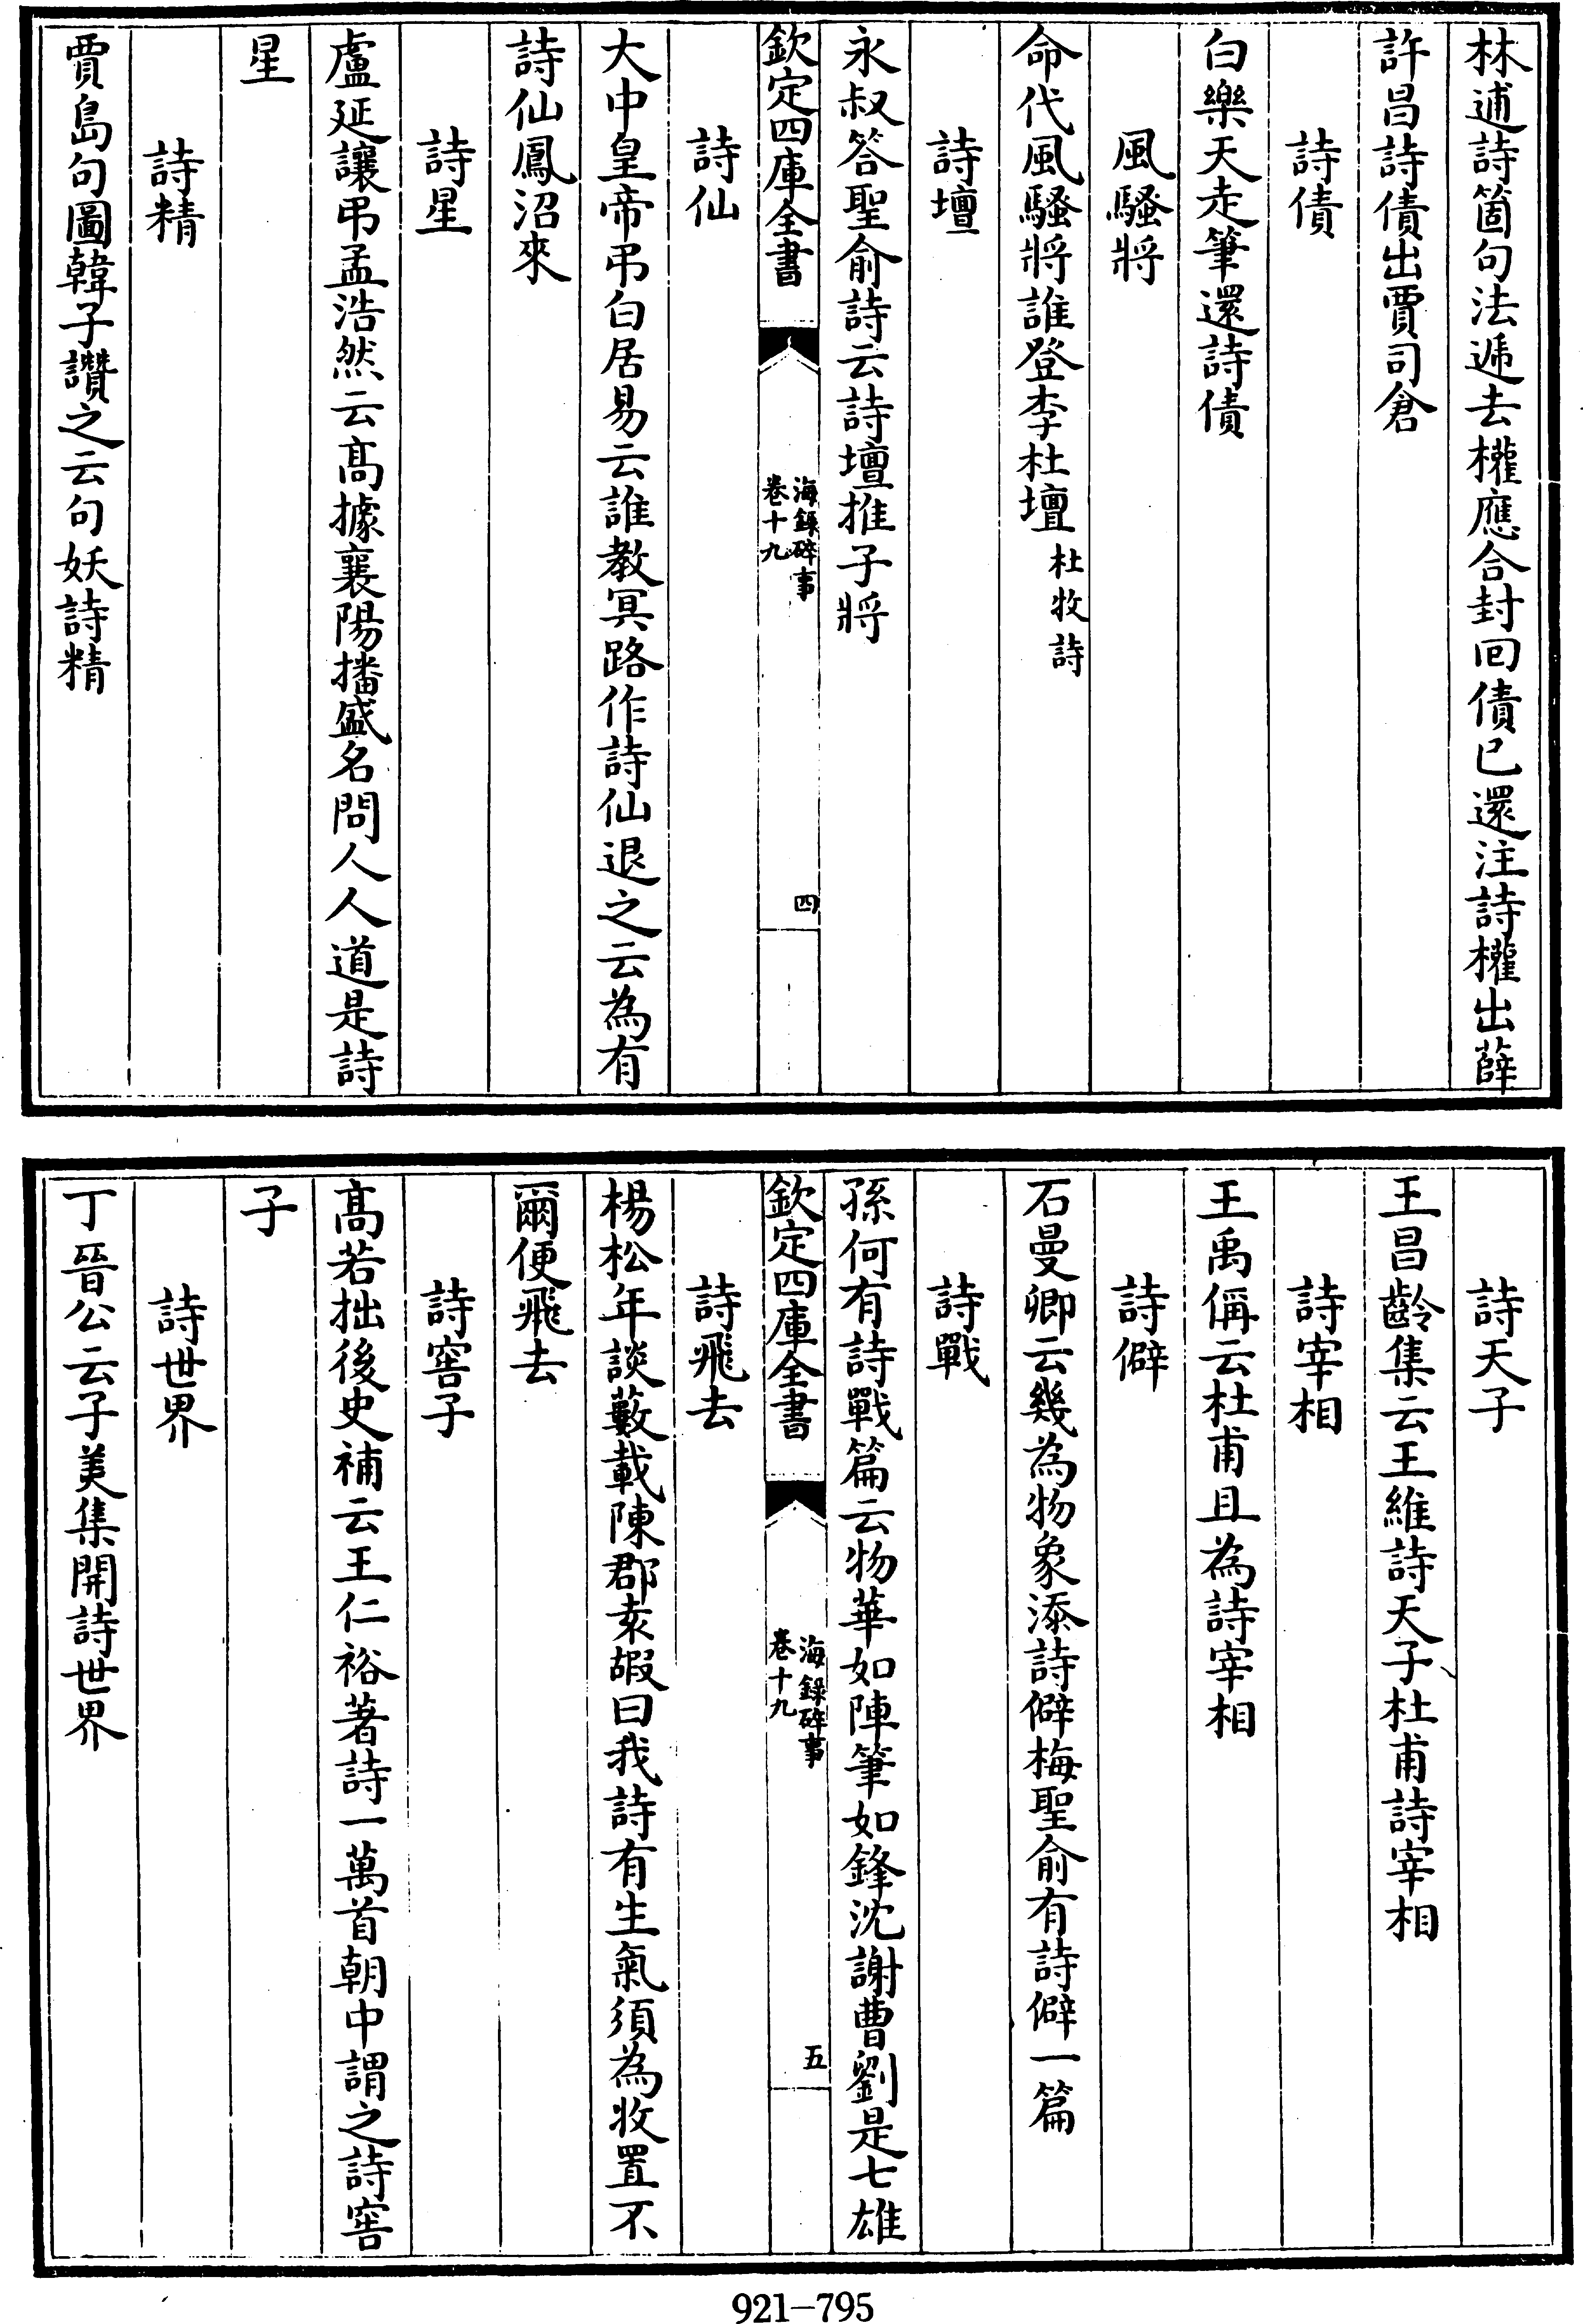 林逋詩箇句法遞去權應合封回債已還注詩權出薛
許昌詩債出賈司倉
詩債
白樂天走筆還詩債
風騷將
命代風騷將誰登李杜壇杜牧詩
詩壇
永叔答聖俞詩云詩壇推子將
欽定四庫全書
海錄碎事
卷十九
四
詩仙
大中皇帝弔白居易云誰教冥路作詩仙退之云為有
詩仙鳳沼來
詩星
盧延讓弔孟浩然云高據襄陽播盛名問人人道是詩
星
詩精
賈島句圖韓子讚之云句妖詩精
詩天子
王昌齡集云王維詩天子杜甫詩宰相
詩宰相
王禹偁云杜甫且為詩宰相
詩僻
石曼卿云幾為物象添詩僻梅聖俞有詩僻一篇
詩戰
孫何有詩戰篇云物華如陣筆如鋒沈謝曹劉是七雄
欽定四庫全書
海錄碎事
卷十九
五
詩飛去
楊松年談藪載陳郡袁嘏曰我詩有生氣須為牧置不
爾便飛去
詩窖子
高若拙後史補云王仁裕著詩一萬首朝中謂之詩窖
子
詩世界
丁晉公云子美集開詩世界
921-795